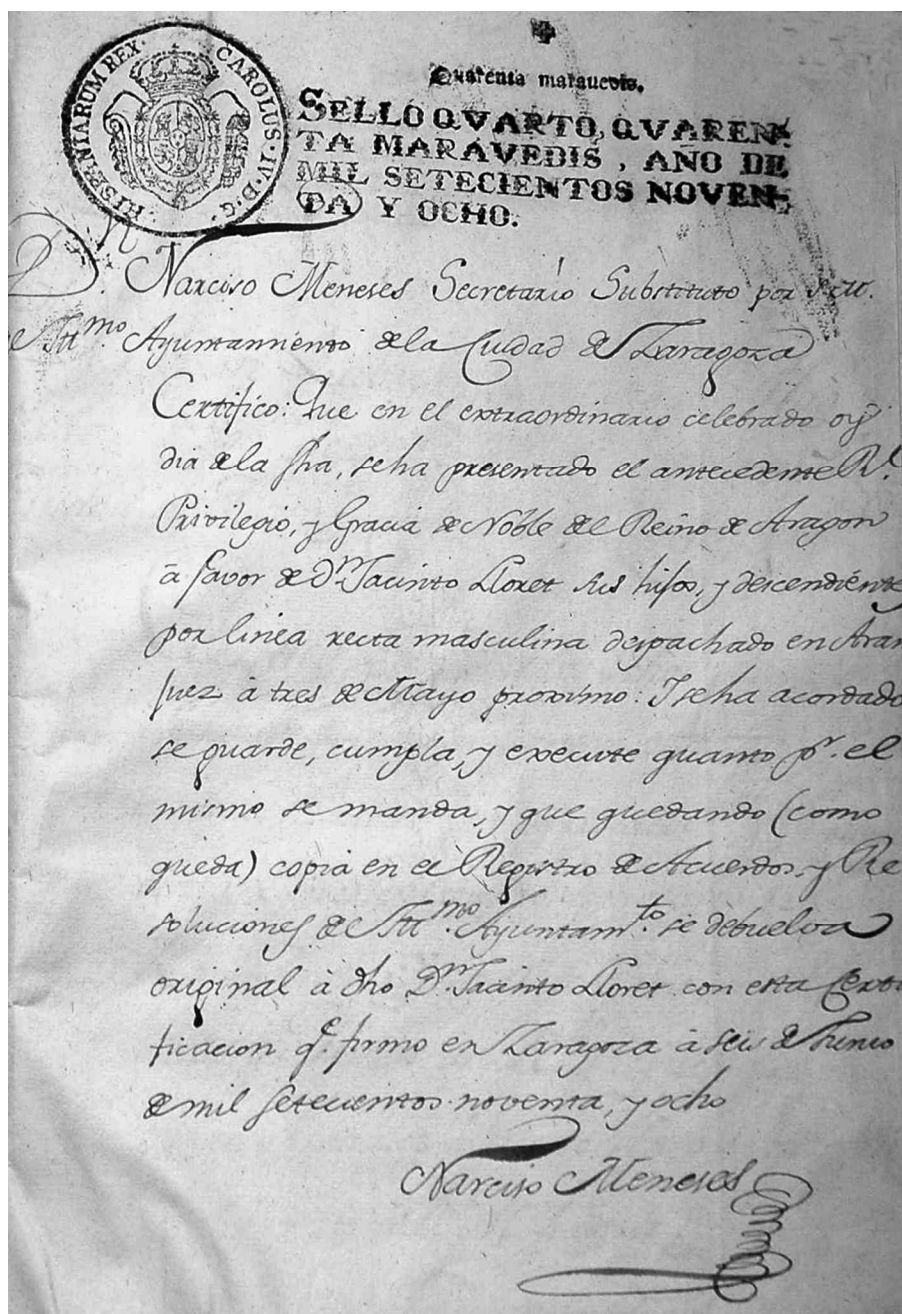 HISPANIARUM REX. CAROLUS. IV. D. G.
Quarenta marauedis.
SELLO QVARTO, QVAREN-
TA MARAVEDIS, AÑO DE
MIL SETECIENTOS NOVEN-
TA Y OCHO.
D. Narciso Meneses Secretario Substituto por
Ill.mo Ayuntamiento de la Ciudad de Zaragoza
Certifico: Que en el extraordinario celebrado oy
dia de la fha, se ha presentado el antecedente R.l
Privilegio, y Gracia de Noble del Reino de Aragon
à favor de D.n Jacinto Lloret sus hijos, y descendiente
por linea recta masculina despachado en Aran
juez à tres de Mayo proximo: I se ha acordado
se guarde, cumpla, y execute quanto p.r el
mismo se manda, y que quedando (como
queda) copia en el Registro de Acuerdos y Re
soluciones de Ill.mo Ayuntam.to se debuelva
original à dho D.n Jacinto Lloret con esta Certi
ficacion q.e firmo en Zaragoza à seis de Junio
de mil setecientos noventa, y ocho
Narciso Meneses